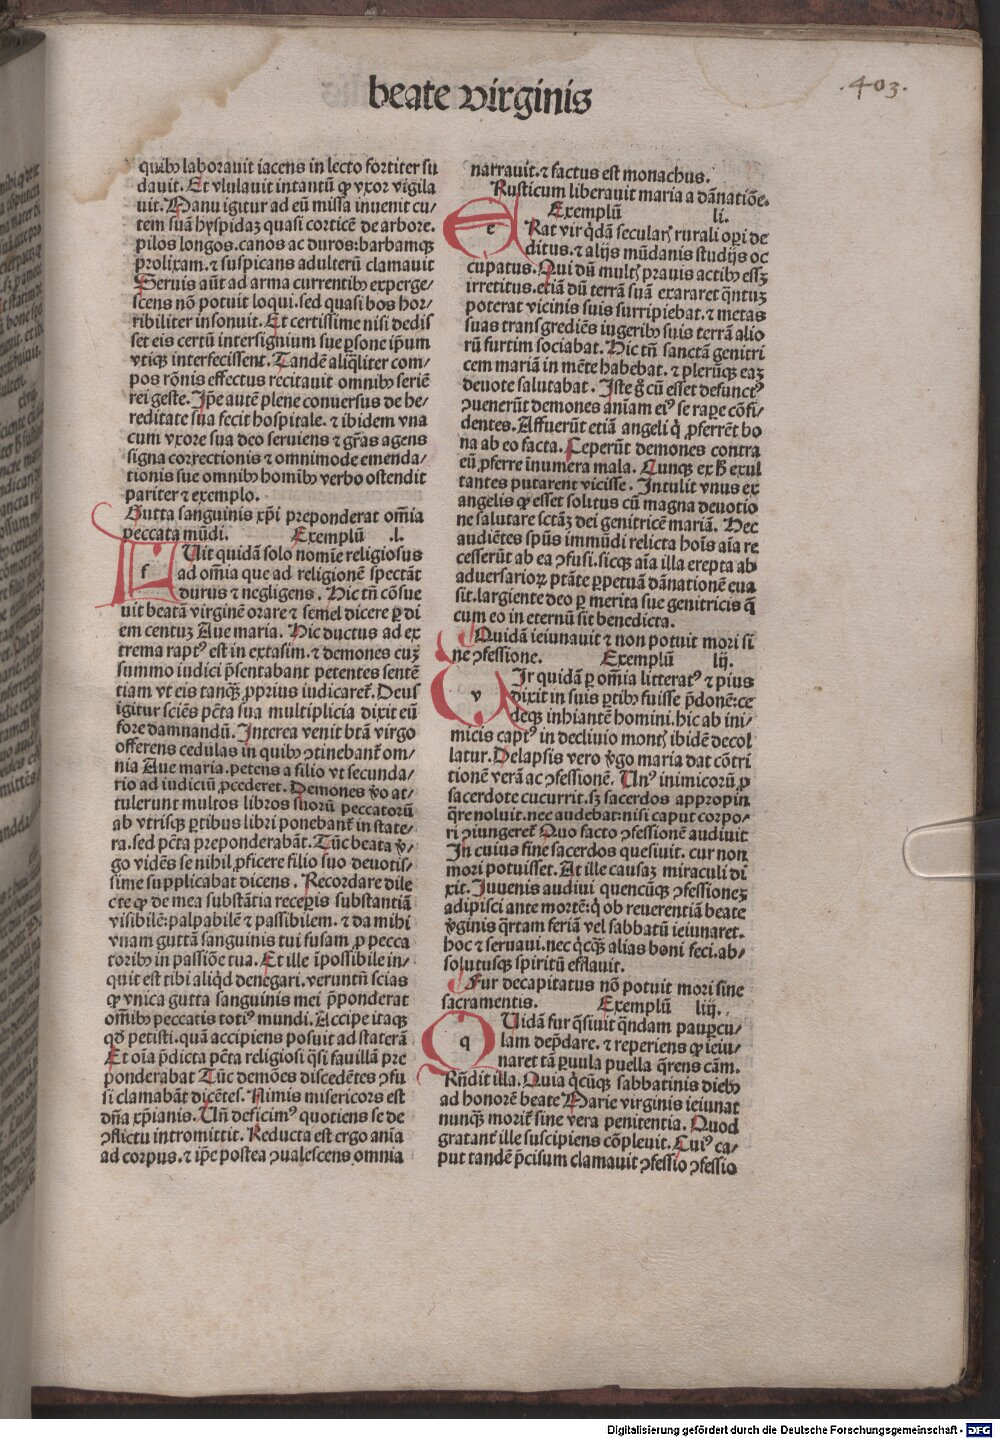 beate virginis
.403.
quibꝰ laborauit iacens in lecto fortiter su
dauit. Et vlulauit intantū ꝙ vxor vigila
uit. Manu igitur ad eū missa inuenit cu⸗
tem suā hyspidaꝫ quasi corticē de arbore.
pilos longos. canos ac duros: barbamqꝫ
prolixam. ⁊ suspicans adulterū clamauit
Seruis aūt ad arma currentibꝰ experge⸗
scens nō potuit loqui. sed quasi bos hor⸗
ribiliter insonuit. Et certissime nisi dedis
set eis certū intersignium sue ꝑsone ip̄um
vtiqꝫ interfecissent. Tandē aliq̄liter com⸗
pos rōnis effectus recitauit omnibꝰ seriē
rei geste. Ip̄e autē plene conuersus de he⸗
reditate sua fecit hospitale. ⁊ ibidem vna
cum vxore sua deo seruiens ⁊ gr̄as agens
signa correctionis ⁊ omnimode emenda⸗
tionis sue omnibꝰ homibꝰ verbo ostendit
pariter ⁊ exemplo.
Gutta sanguinis xp̄i preponderat om̄ia
peccata mūdi. Exemplū .l.
f Uit quidā solo nomīe religiosus
ad om̄ia que ad religionē spectāt
durus ⁊ negligens. Hic tn̄ cōsue
uit beatā virginē orare ⁊ semel dicere ꝑ di
em centuꝫ Aue maria. Hic ductus ad ex
trema raptꝰ est in extasim. ⁊ demones cuꝫ
summo iudici p̄sentabant petentes sentē
tiam vt eis tanqꝫ ꝓprius iudicaret. Deus
igitur sciēs pctā sua multiplicia dixit eū
fore damnandū. Interea venit btā virgo
offerens cedulas in quibꝰ ↄtinebant̄ om⸗
nia Aue maria. petens a filio vt secunda⸗
rio ad iudiciū ꝓcederet. Demones ꝟo at⸗
tulerunt multos libros suorū peccatorū
ab vtrisqꝫ ꝑtibus libri ponebant̄ in state⸗
ra. sed pctā preponderabāt. Tūc beata ꝟ⸗
go vidēs se nihil ꝓficere filio suo deuotis⸗
sime supplicabat dicens. Recordare dile
cte ꝙ de mea substātia recepis substantiā
visibilē: palpabilē ⁊ passibilem. ⁊ da mihi
vnam guttā sanguinis tui fusam ꝓ pecca
toribꝰ in passiōe tua. Et ille īpossibile in⸗
quit est tibi aliqd denegari. veruntn̄ scias
ꝙ vnica gutta sanguinis mei p̄ponderat
om̄ibꝰ peccatis totiꝰ mundi. Accipe itaqꝫ
qd̄ petisti. quā accipiens posuit ad staterā
Et oīa p̄dicta pctā religiosi q̄si fauillā pre
ponderabat Tūc demōes discedētes ↄfu
si clamabāt dicētes. Nimis misericors est
dn̄a xp̄ianis. Un̄ deficimꝰ quotiens se de
ↄflictu intromittit. Reducta est ergo anīa
ad corpus. ⁊ ip̄e postea ↄualescens omnia
narrauit. ⁊ factus est monachus.
Rusticum liberauit maria a dānatiōe.
Exemplū li.
e Rat vir qdā seculari rurali oꝑi de
ditus. ⁊ alijs mūdanis studijs oc
cupatus. Qui dū mult̄ prauis actibꝰ esseꝫ
irretitus. etiā dū terrā suā exararet q̄ntuꝫ
poterat vicinis suis surripiebat. ⁊ metas
suas transgrediēs iugeribꝰ suis terrā alio
rū furtim sociabat. Hic tn̄ sanctā genitri
cem mariā in mēte habebat. ⁊ pleruqꝫ eaꝫ
deuote salutabat. Iste g̊ cū esset defunctꝰ
ↄuenerūt demones aniam eiꝰ se rapere cōfi⸗
dentes. Affuerūt etiā angeli q̇ ꝓferrēt bo
na ab eo facta. Ceperūt demones contra
eū ꝓferre inumera mala. Cunqꝫ ex h̄ exul
tantes putarent vicisse. Intulit vnus ex
angelis ꝙ esset solitus cū magna deuotio
ne salutare sctāꝫ dei genitricē mariā. Hec
audiētes spūs immūdi relicta hoīs aīa re
cesserūt ab ea ↄfusi. sicqꝫ aīa illa erepta ab
adversarioꝝ ptāte ꝑpetuā dānationē eua
sit. largiente deo ꝑ merita sue genitricis q̄
cum eo in eternū sit benedicta.
Quidā ieiunauit ⁊ non potuit mori si
ne ↄfessione. Exemplū lij.
v Ir quidā ꝑ om̄ia litteratꝰ ⁊ pius
dixit in suis ꝑtibꝰ fuisse p̄donē: ce
deqꝫ inhiantē homini. hic ab ini⸗
micis captꝰ in decliuio mont̄ ibidē decol
latur. Delapsis vero ꝟgo maria dat cōtri
tionē verā ac ↄfessionē. Unꝰ inimicorū ꝓ
sacerdote cucurrit. sꝫ sacerdos appropin
q̄re noluit. nec audebat: nisi caput corpo⸗
ri ↄiungeret̄ Quo facto ↄfessionē audiuit
In cuius fine sacerdos quesiuit. cur non
mori potuisset. At ille causaꝫ miraculi di
xit. Iuuenis audiui quencūqꝫ ↄfessioneꝫ
adipisci ante mortē: q̇ ob reuerentiā beate
ꝟginis q̄rtam feriā vel sabbatū ieiunaret.
hoc ⁊ seruaui. nec q̇cqꝫ alias boni feci. ab⸗
solutusqꝫ spiritū efflauit.
Fur decapitatus nō potuit mori sine
sacramentis. Exemplū liij.
q Uidā fur q̄siuit q̄ndam pauꝑcu⸗
lam dep̄dare. ⁊ reperiens ꝙ ieiu⸗
naret tā ꝑuula puella q̄rens cām.
Rn̄dit illa. Quia q̇cūqꝫ sabbatinis diebꝰ
ad honorē beate Marie virginis ieiunat
nunqꝫ morit̄ sine vera penitentia. Quod
gratant̄ ille suscipiens cōpleuit. Cuiꝰ ca⸗
put tandē p̄cisum clamauit ↄfessio ↄfessio
Digitalisierung gefördert durch die Deutsche Forschungsgemeinschaft - DFG